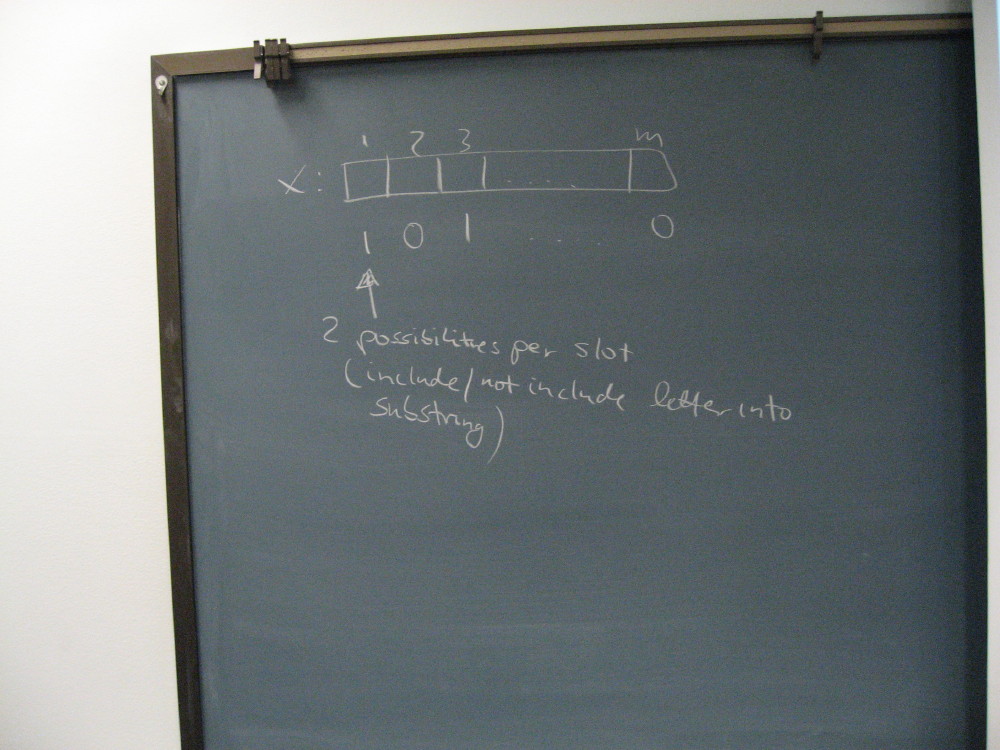 1 2 3 m
X: .....
1 0 1 ..... 0
2 possibilities per slot
(include/not include letter into
substring)